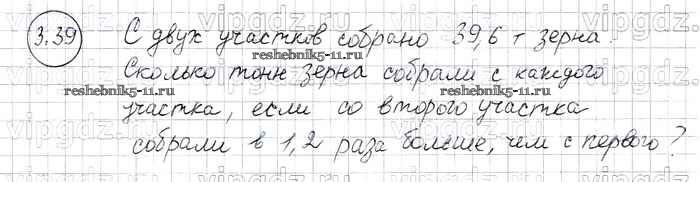 3.39 С двух участков собрано 39,6 т зерна.
reshebnik5-11.ru
Сколько тонн зерна собрали с каждого
reshebnik5-11.ru
reshebnik5-11.ru
участка, если со второго участка
собрали в 1,2 раза больше, чем с первого?
vipgdz.com